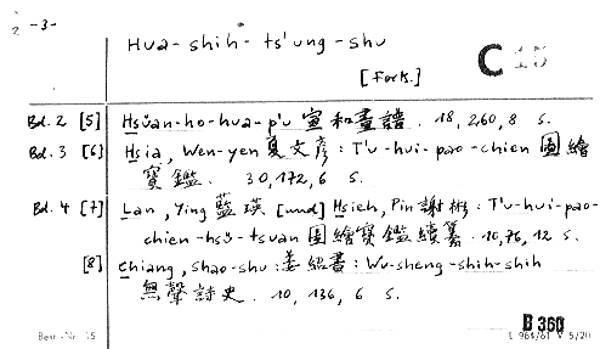 -3-
Hua-shih-ts'ung-shu
[Forts.]
C 15
Bd. 2 [5] Hsüan-ho-hua-p'u 宣和畫譜. 18, 260, 8 S.
Bd. 3 [6] Hsia, Wen-yen 夏文彥: T'u-hui-pao-chien 圖繪
寶鑑. 30, 172, 6 S.
Bd. 4 [7] Lan, Ying 藍瑛 [und] Hsieh, Pin 謝彬: T'u-hui-pao-
chien-hsü-tsuan 圖繪寶鑑續纂. 10, 76, 12 S.
[8] Chiang, Shao-shu: 姜紹書: Wu-sheng-shih-shih
無聲詩史. 10, 136, 6 S.
B 360
Best.-Nr. 15
L 964/61 V 5/20